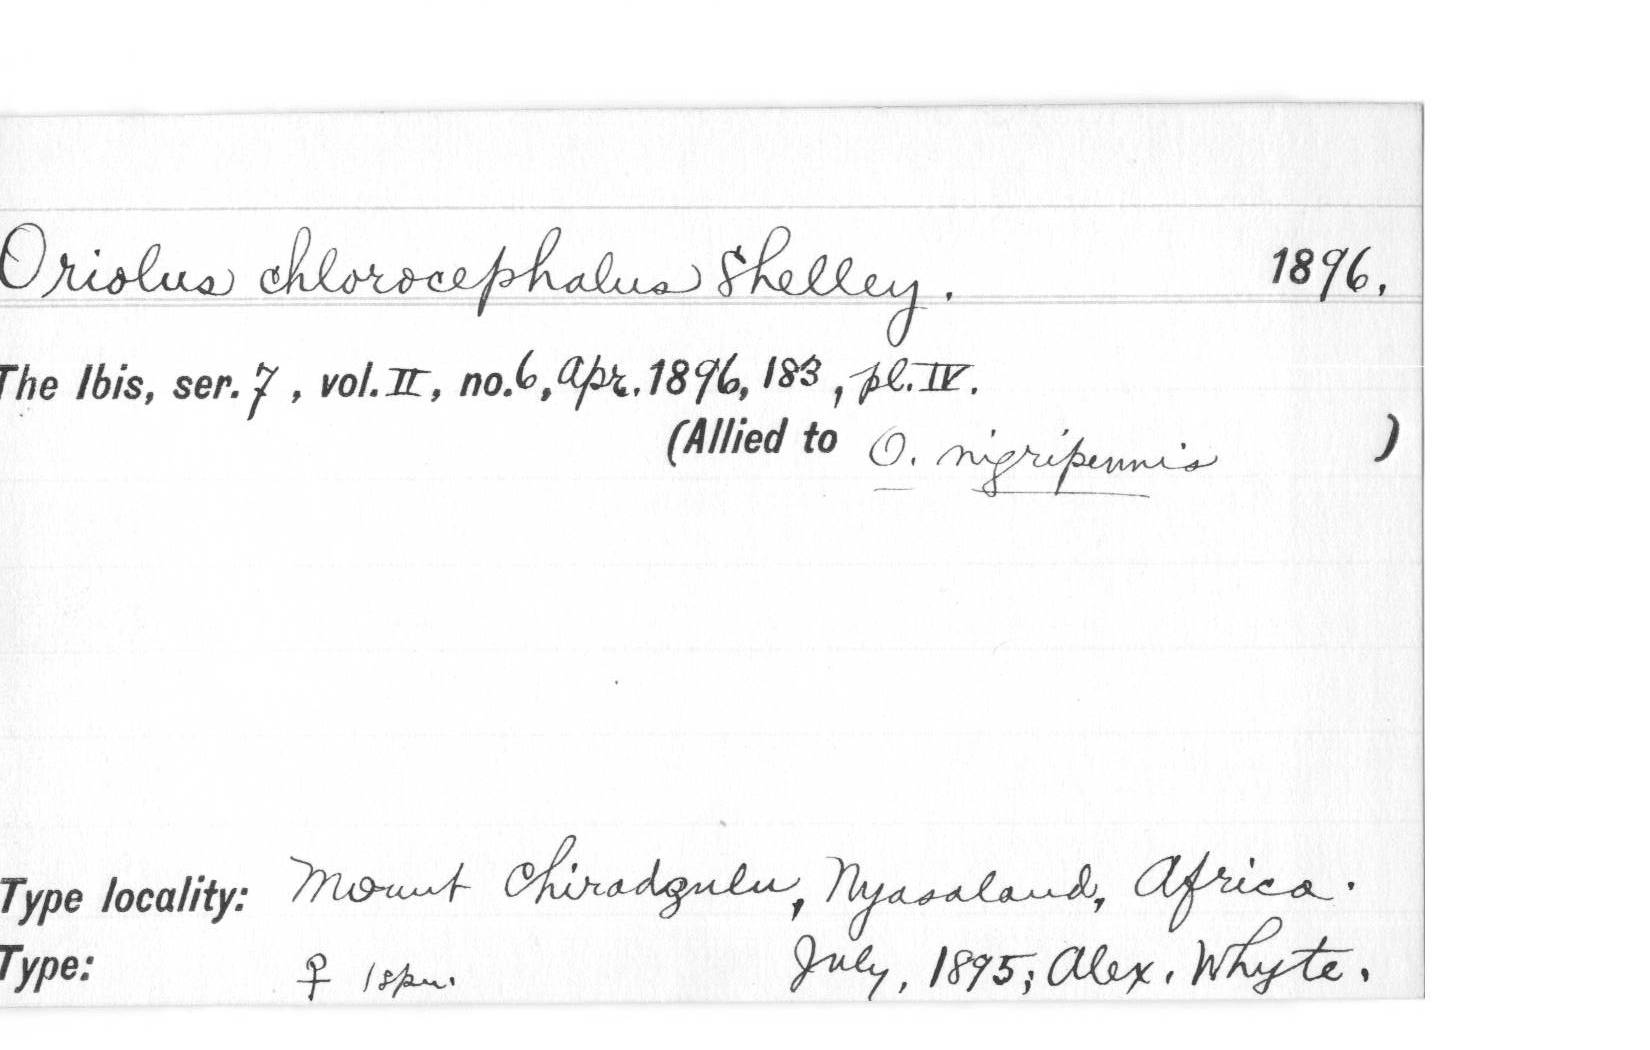 Oriolus chlorocephalus Shelley. 1896.
The Ibis, ser. 7, vol. II, no. 6, Apr. 1896, 183, pl. IV.
(Allied to O. nigripennis )
Type locality: Mount Chiradzulu, Nyasaland, Africa.
Type: ♀ 1 spn. July, 1895; Alex. Whyte.